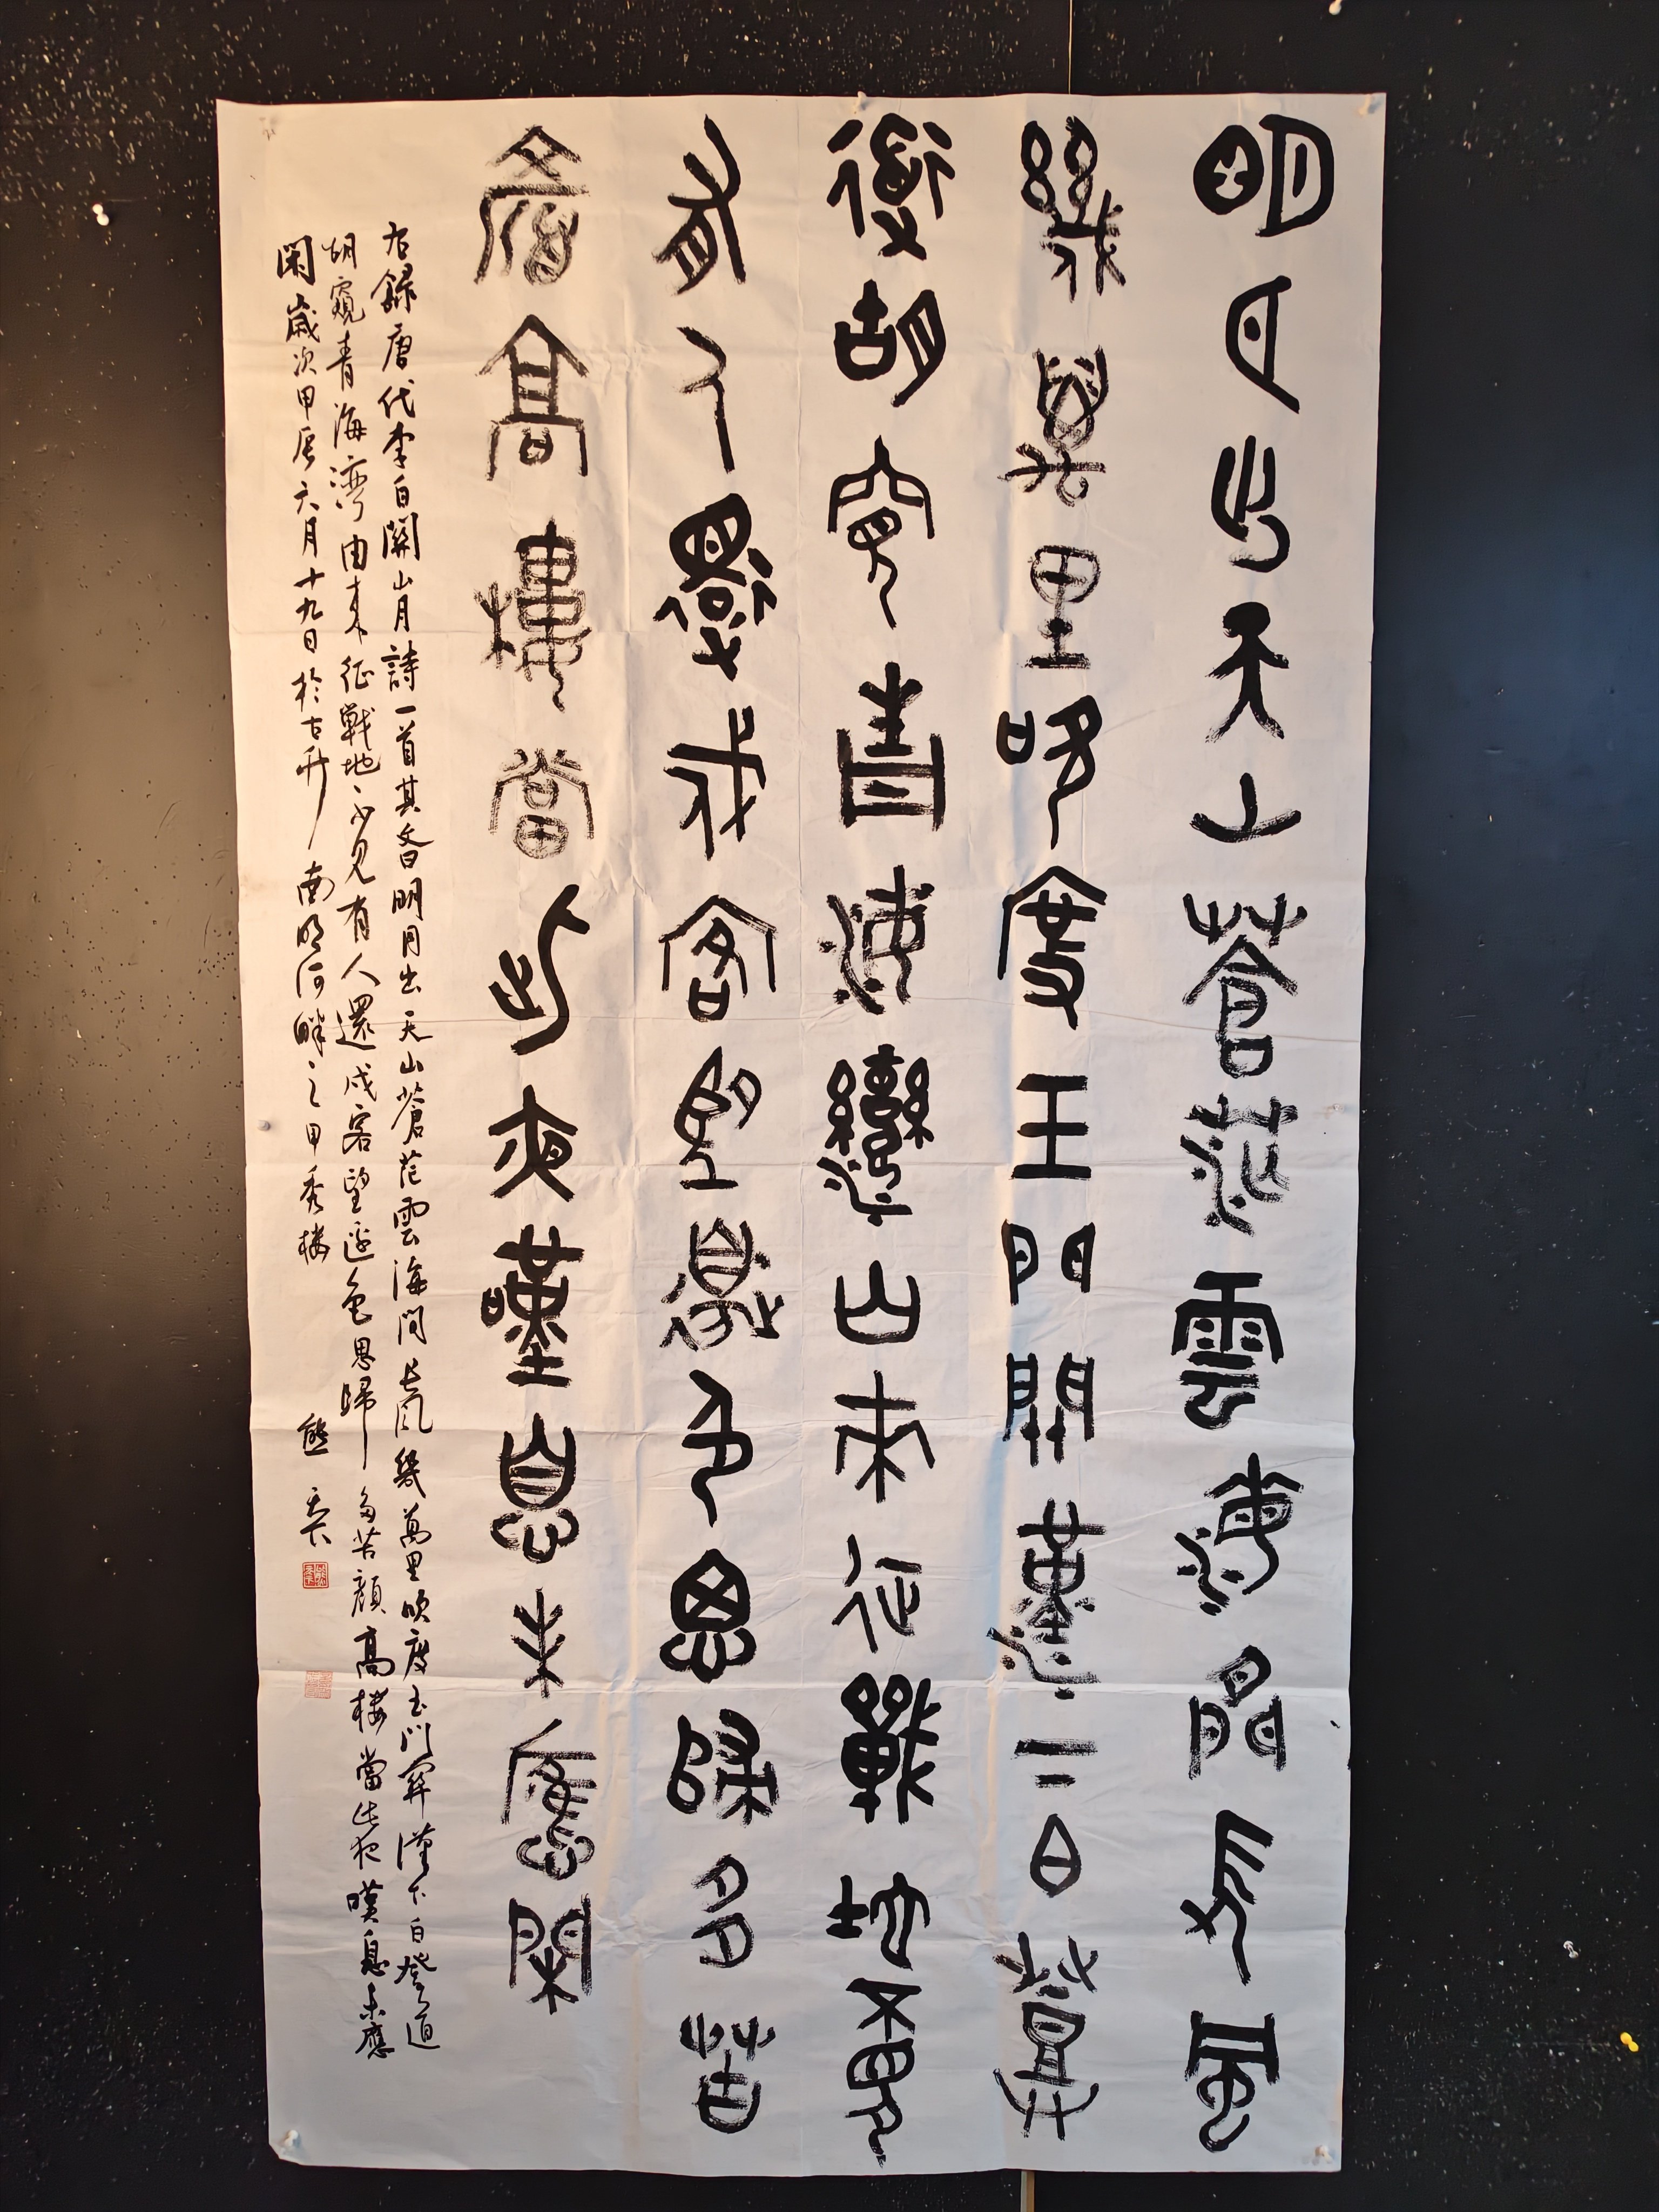 明月出天山蒼茫雲海間長風
幾萬里吹度玉門關漢下白登
道胡窺青海灣由來征戰地不見
有人還戍客望邊色思歸多苦
顏高樓當此夜嘆息未應閑
右錄唐代李白關山月詩一首其文曰明月出天山蒼茫雲海間長風幾萬里吹度玉門關漢下白登道
胡窺青海灣由来征戰地不見有人還戍客望邊色思歸多苦顏高楼當此夜嘆息未應
閑歲次甲辰六月十九日於古筑南明河畔之甲秀楼 熊